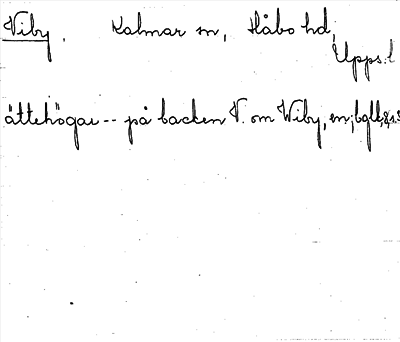 Viby. Kalmar sn, Håbo hd,
Upps. l
ättehögar -- på backen V. om Wiby, en; bgbl,